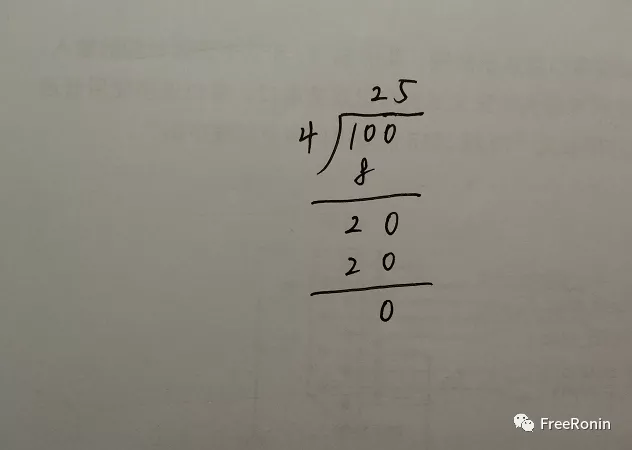 25
4 100
8
20
20
0
FreeRonin